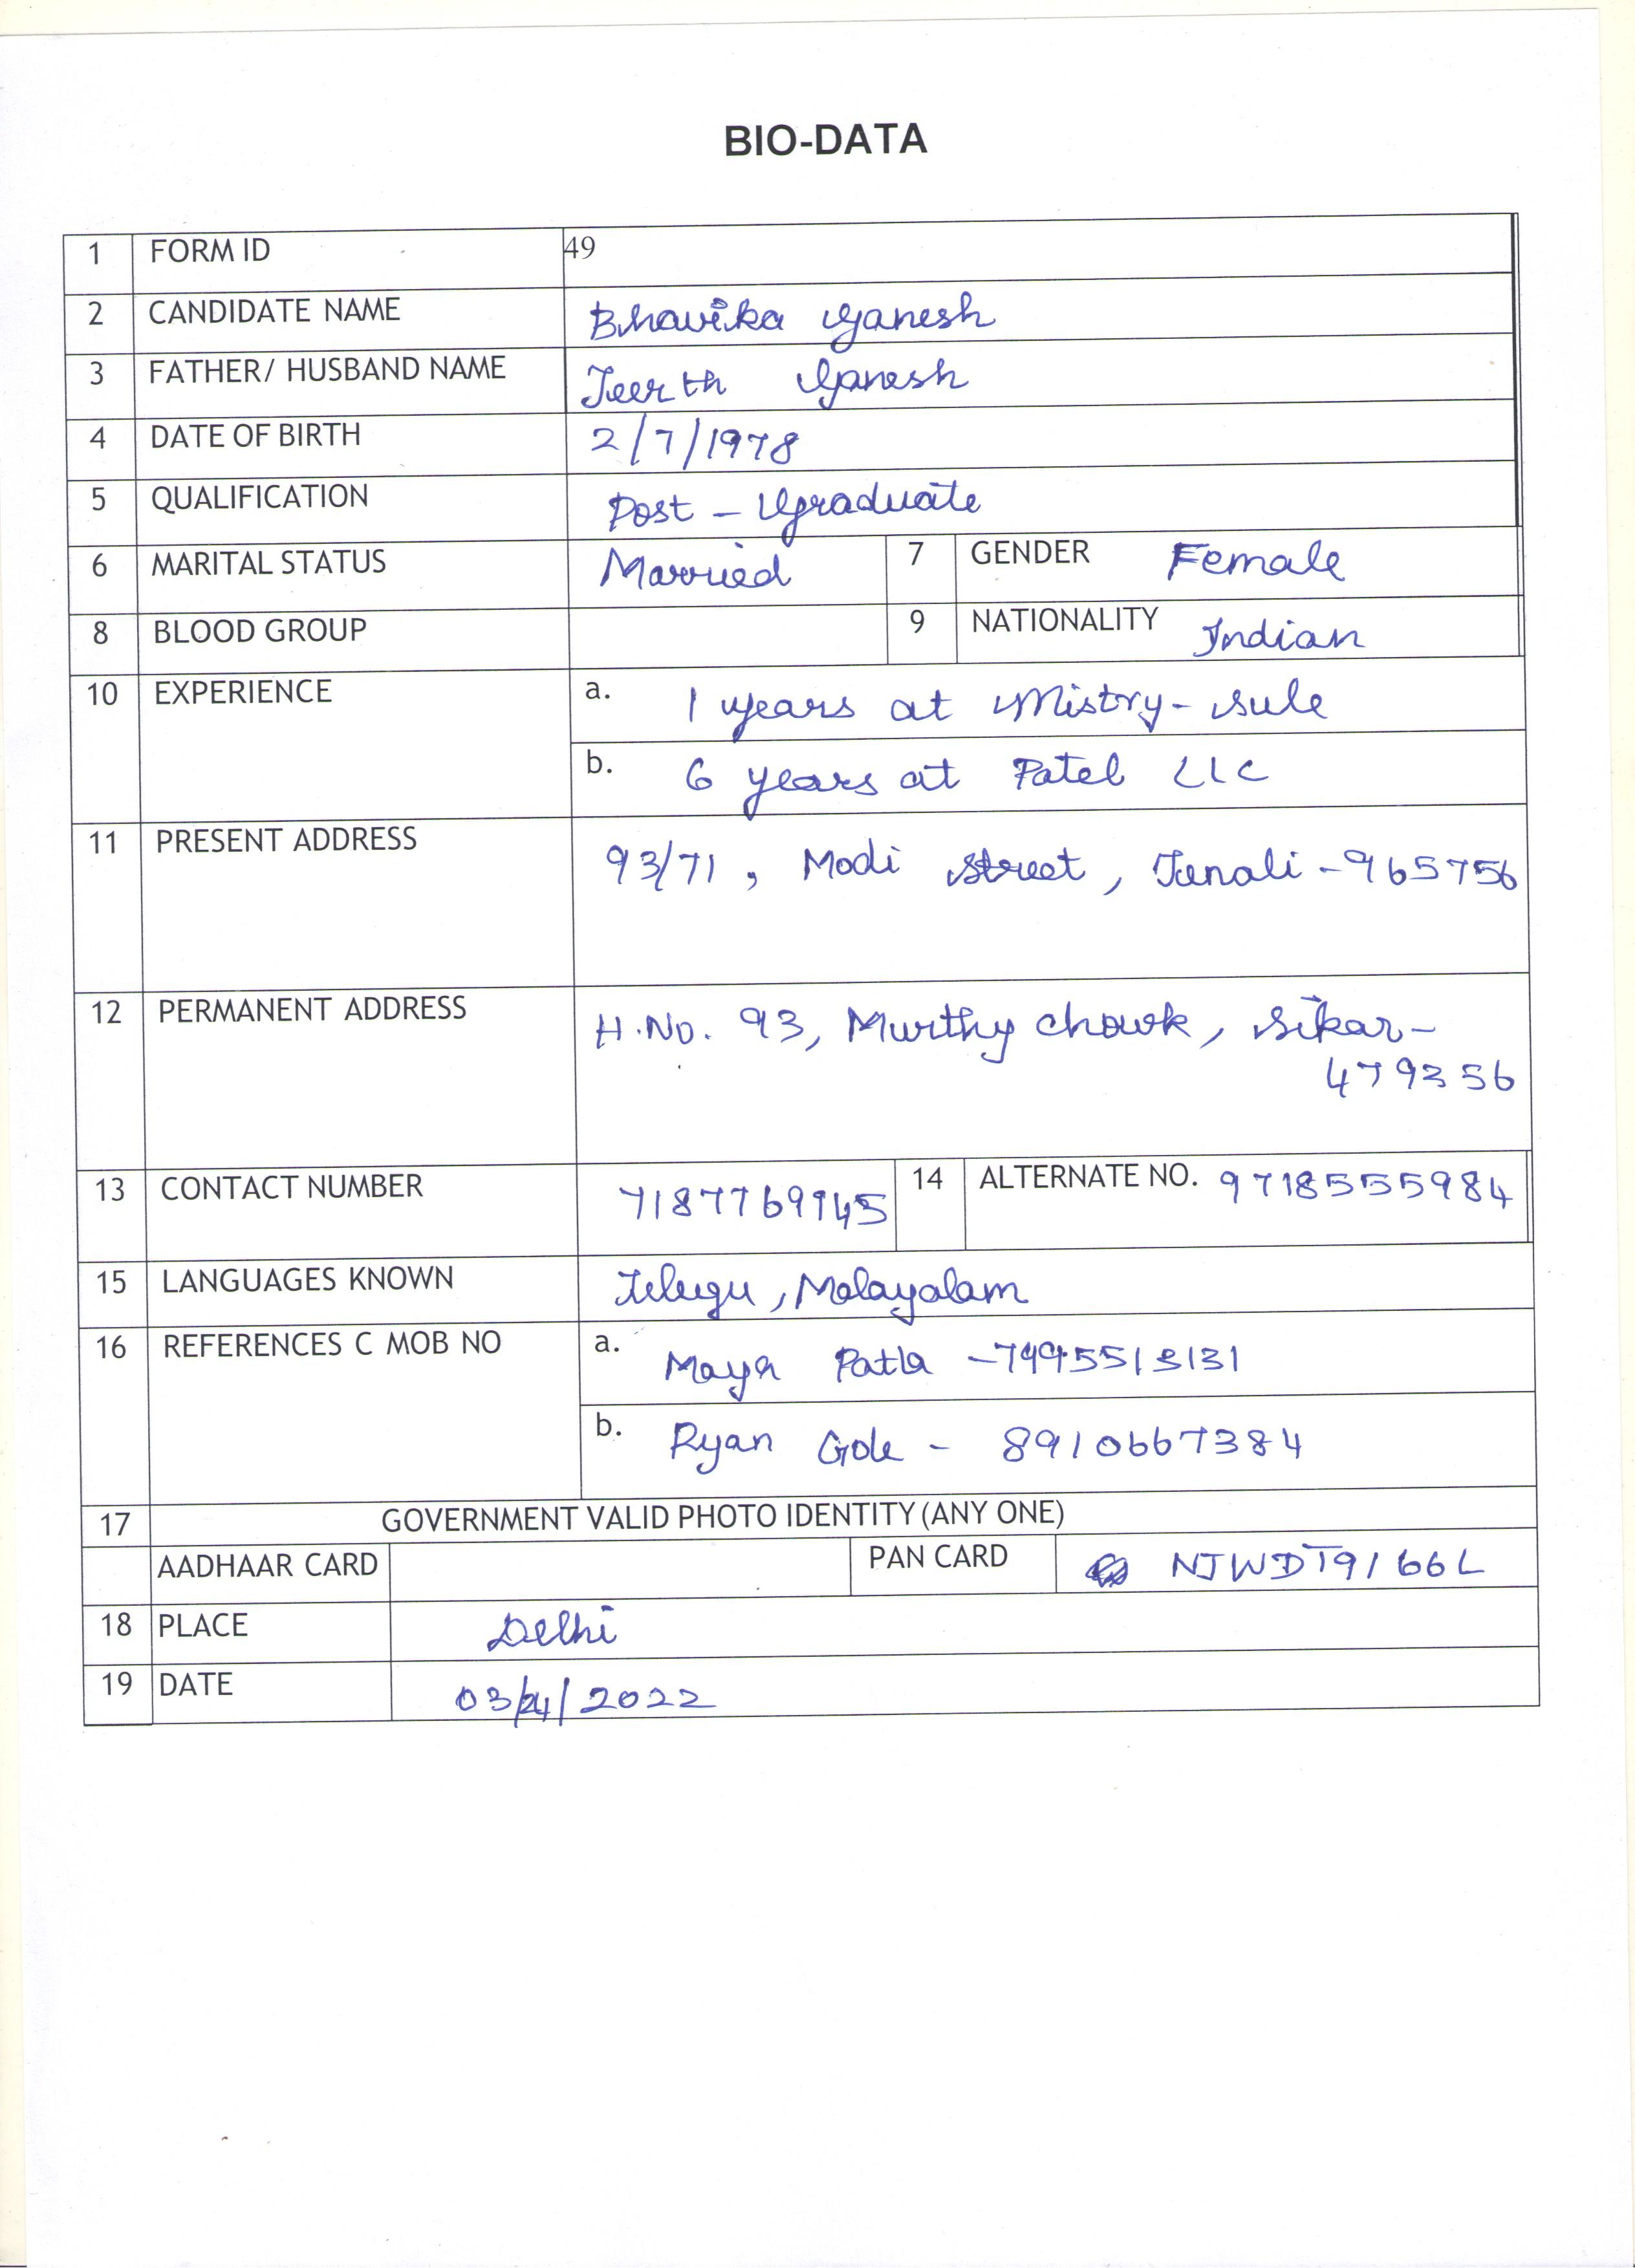 BIO-DATA
1 FORM ID 49
2 CANDIDATE NAME Bhavika Ganesh
3 FATHER/ HUSBAND NAME Teerth Ganesh
4 DATE OF BIRTH 2/7/1978
5 QUALIFICATION Post - Graduate
6 MARITAL STATUS Married 7 GENDER Female
8 BLOOD GROUP 9 NATIONALITY Indian
10 EXPERIENCE a. 1 years at Mistry-Sule
b. 6 years at Patel LLC
11 PRESENT ADDRESS 93/71, Modi Street, Tenali-965756
12 PERMANENT ADDRESS H.No. 93, Murthy Chowk, Sikar-
479356
13 CONTACT NUMBER 7187769945 14 ALTERNATE NO. 9718555984
15 LANGUAGES KNOWN Telugu, Malayalam
16 REFERENCES C MOB NO a. Maya Patla - 7995513131
b. Ryan Gole - 8910667384
17 GOVERNMENT VALID PHOTO IDENTITY (ANY ONE)
AADHAAR CARD PAN CARD NJWDT9166L
18 PLACE Delhi
19 DATE 03/4/2022